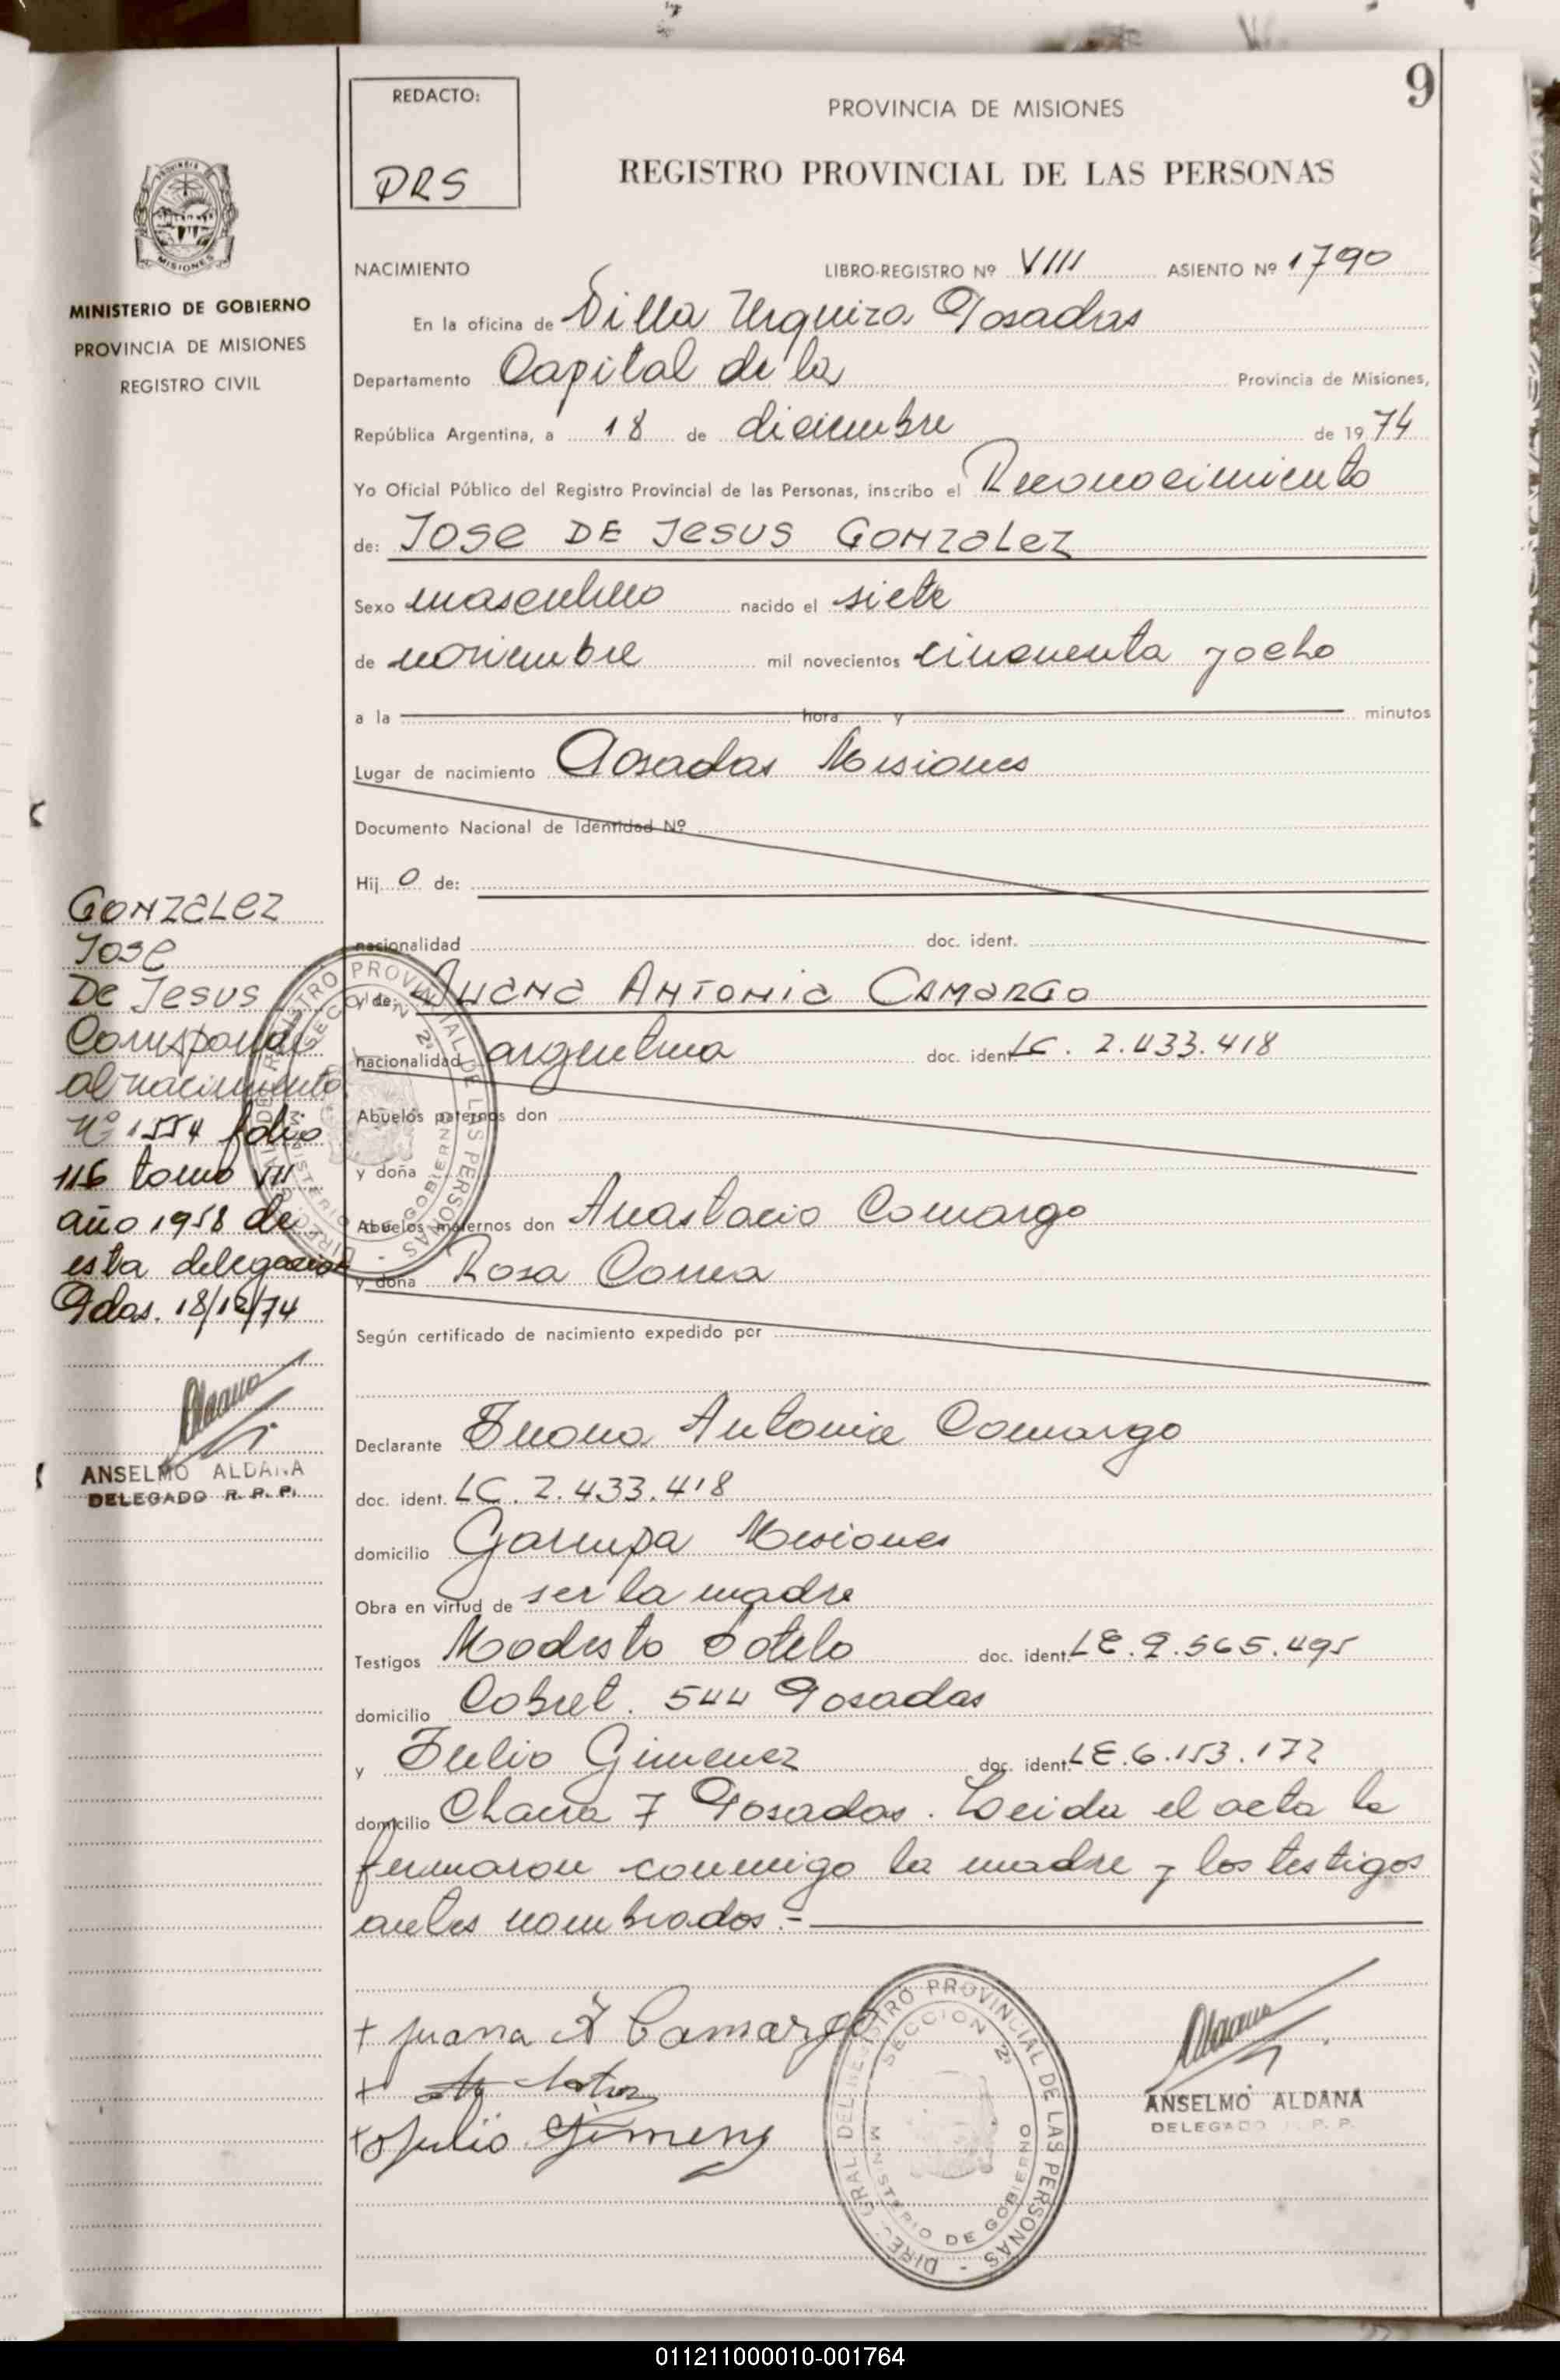 9
REDACTO:
DRS
PROVINCIA DE MISIONES
REGISTRO PROVINCIAL DE LAS PERSONAS
MISIONES
MINISTERIO DE GOBIERNO
PROVINCIA DE MISIONES
REGISTRO CIVIL
NACIMIENTO LIBRO-REGISTRO Nº VIII ASIENTO Nº 1790
En la oficina de Villa Urquiza Posadas
Departamento Capital de la Provincia de Misiones,
República Argentina, a 18 de diciembre de 1974
Yo Oficial Público del Registro Provincial de las Personas, inscribo el Reconocimiento
de: JOSE DE JESUS GONZALEZ
Sexo masculino nacido el siete
de noviembre mil novecientos cincuenta y ocho
a la hora y minutos
Lugar de nacimiento Posadas Misiones
Documento Nacional de Identidad Nº
Hij o de:
nacionalidad doc. ident.
y de: JUANA ANTONIA CAMARGO
nacionalidad argentina doc. ident. LC. 2.433.418
Abuelos paternos don
y doña
Abuelos maternos don Anastacio Camargo
y doña Rosa Correa
Según certificado de nacimiento expedido por
Declarante Juana Antonia Camargo
doc. ident. LC. 2.433.418
domicilio Garupa Misiones
Obra en virtud de ser la madre
Testigos Modesto Sotelo doc. ident. LE. 9.565.495
domicilio Cabret. 544 Posadas
y Julio Gimenez doc. ident. LE. 6.153.172
domicilio Chacra 7 Posadas. Leida el acta la
firmaron conmigo la madre y los testigos
antes nombrados.-
GONZALEZ
JOSE
De Jesus
Corresponde
al nacimiento
Nº 1554 folio
116 tomo VII
año 1958 de
esta delegacion
Pdas. 18/12/74
ANSELMO ALDANA
DELEGADO R. P. P.
DIREC. GRAL. DEL REGISTRO PROVINCIAL DE LAS PERSONAS
SECCION 2ª
MINISTERIO DE GOBIERNO
+ Juana A Camargo
+
+ Julio Gimenez
DIREC. GRAL. DEL REGISTRO PROVINCIAL DE LAS PERSONAS
SECCION 2ª
MINISTERIO DE GOBIERNO
ANSELMO ALDANA
DELEGADO R. P. P.
011211000010-001764